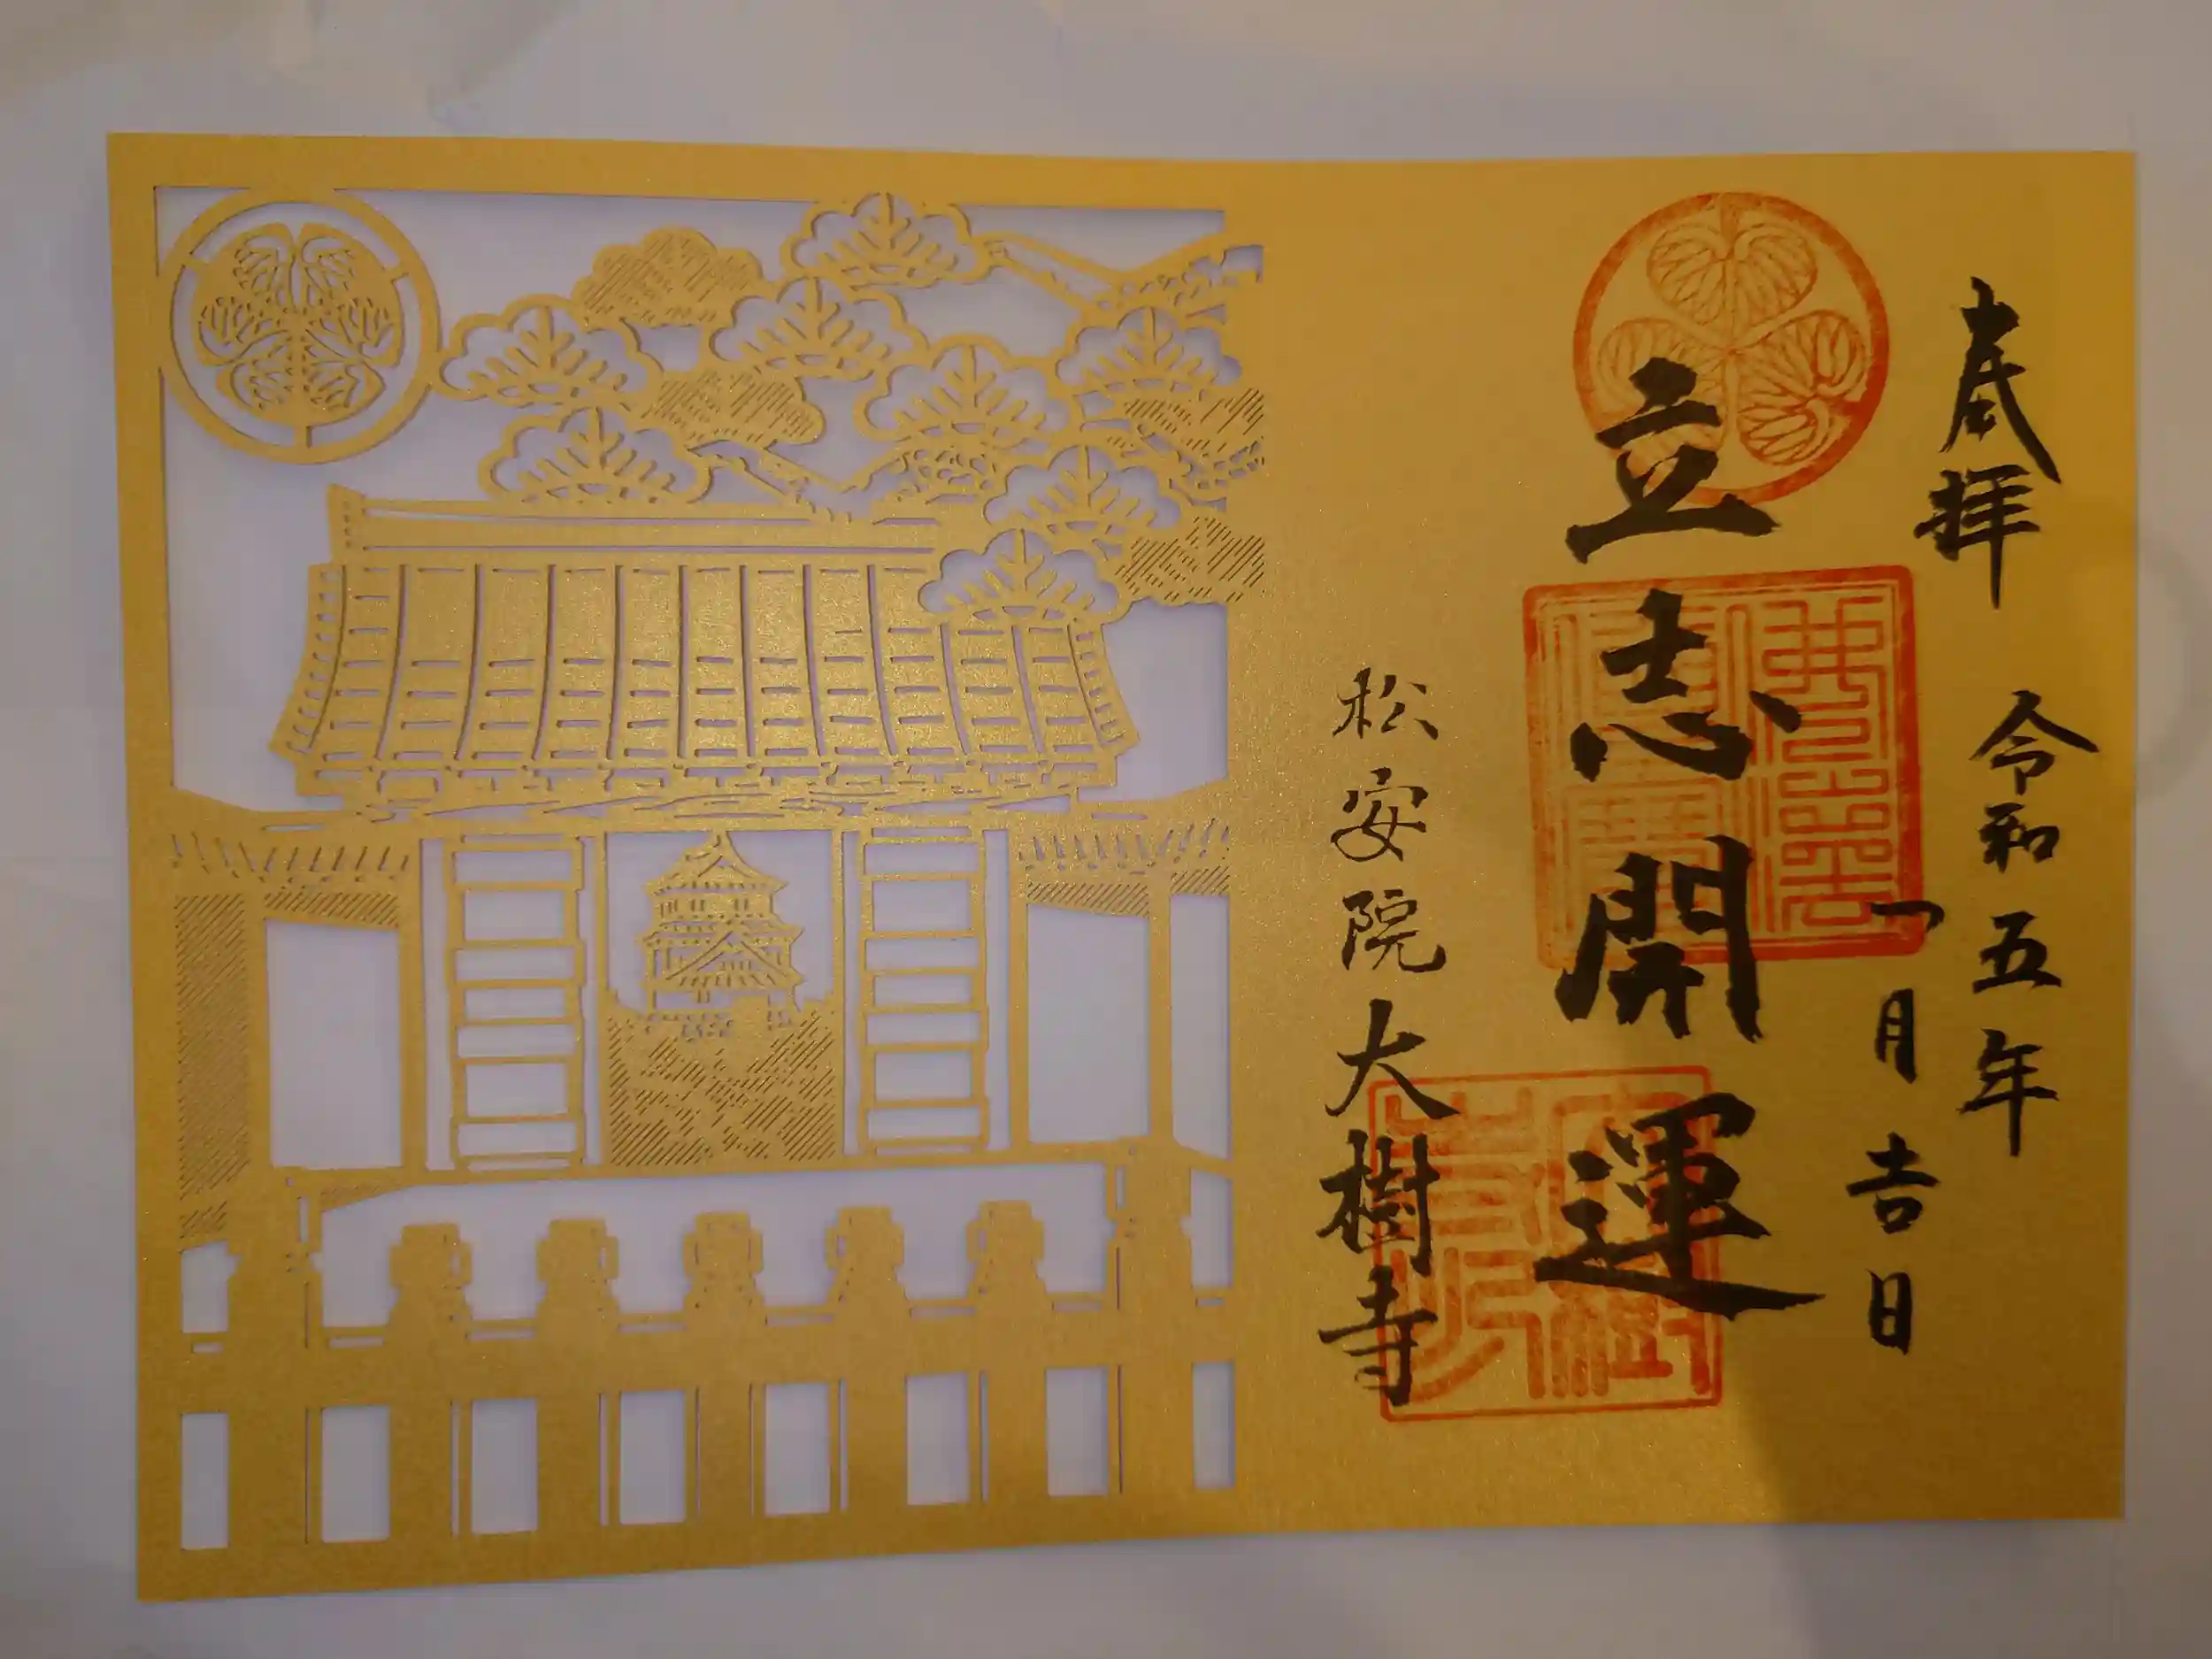 奉拝
令和五年
一月吉日
立志開運
松安院大樹寺